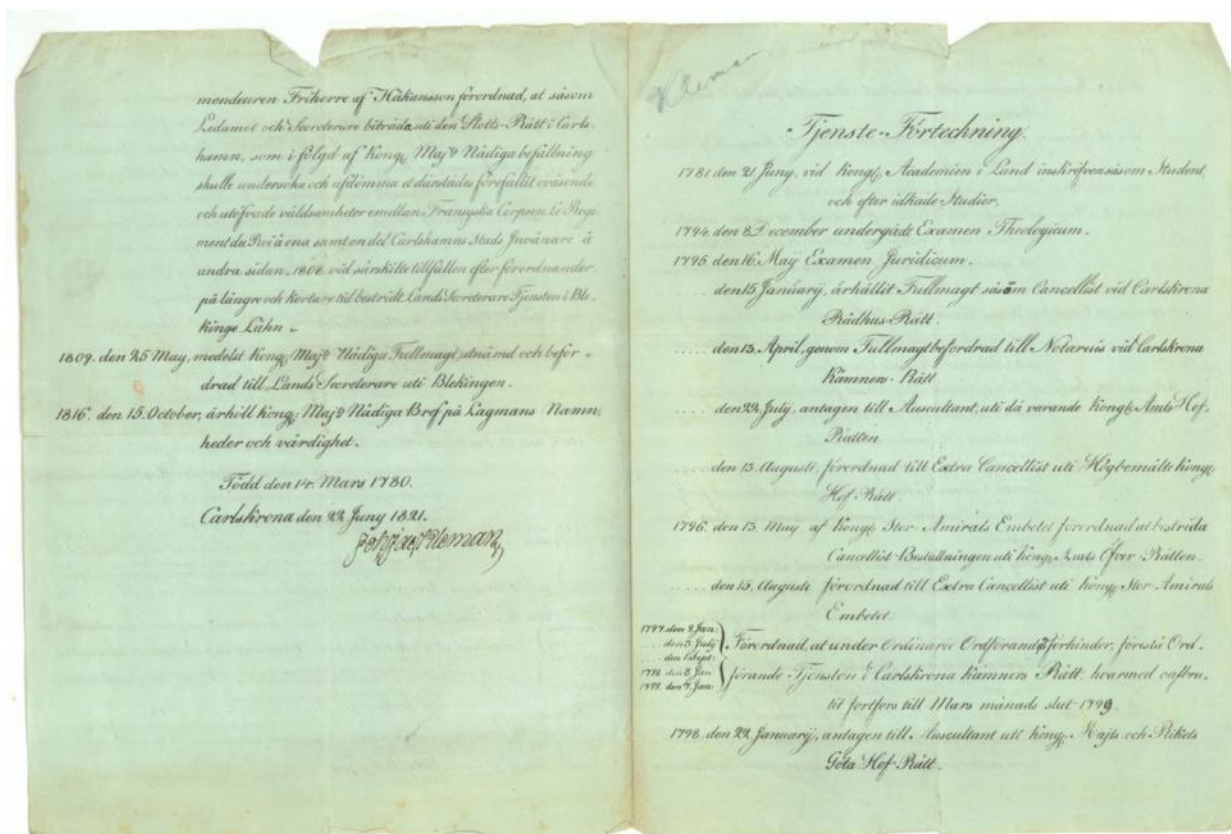 mendeuren Friherre af Håkansson förordnad, at såsom
Ledamot och Secreterare biträda uti den Slotts-Rätt i Carls-
hamn, som i följd af Kongl. Maj:ts Nådiga befallning
skulle undersöka och afdömma et därstädes förefallit oväsende
och utöfvade våldsamheter emellan Fransyska Corpsen Le Regi
ment du Roi å ena samt en del Carlshamns Stads Invånare å
andra sidan. 1808. vid särskilte tillfällen efter förordnander,
på längre och kortare tid bestridt Lands Secreterare Tjensten i Ble-
kinge Lähn -
1809. den 25 May, medelst Kongl. Maj:ts Nådiga Fullmagt, utnämd och befor-
drad till Lands Secreterare uti Blekingen.
1816. den 15. October, ärhöll Kongl. Maj:ts Nådiga Bref på Lagmans Namn,
heder och värdighet.
Född den 14. Mars 1780.
Carlskrona den 22. Juny 1821.
Kleman
Tjenste-Förteckning.
1781. den 21. Juny, vid Kongl. Academien i Lund inskrefven såsom Student,
och efter idkade Studier,
1794. den 8 December undergådt Examen Theologicum.
1795. den 16. Maÿ Examen Juridicum.
.... den 15 Januarÿ, ärhållit Fullmagt såsom Cancellist vid Carlskrona
Rådhus-Rätt.
.... den 13. April, genom Fullmagt befordrad till Notarius vid Carlskrona
Kämners-Rätt.
.... den 22. Julÿ, antagen till Auscultant, uti då varande Kongl. Amts Hof-
Rätten
.... den 13. Augusti, förordnad till Extra Cancellist uti Högbemälte Kongl.
Hof-Rätt.
1796. den 13. May af Kongl. Stor Amirals Embetet förordnad at bestrida
Cancellist-Beställningen uti Kongl. Amts Öfver-Rätten.
.... den 15. Augusti förordnad till Extra Cancellist uti Kongl. Stor Amirals
Embetet.
1797. den 9. Jan:
.... den 3. Julÿ
.... den 1 Sept:
1798. den 8. Jan:
1799. den 7. Jan:
Förordnad, at under Ordinarie Ordförandes förhinder, förestå Ord-
förande-Tjensten i Carlskrona Kämners Rätt, hvarmed oafbru-
tit fortfors till Mars månads slut 1799.
1798. den 22. Januarÿ, antagen till Auscultant uti Kongl. Majts och Rikets
Göta Hof-Rätt.